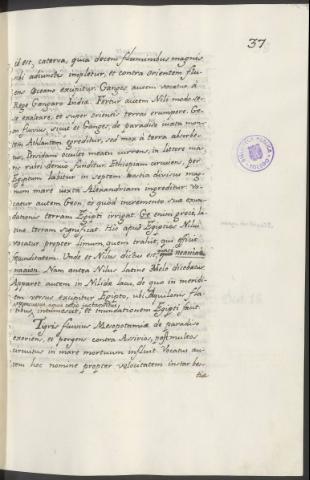 37
id est, caterva, quia decem fluminibus magnis
sibi adiunctis impletur, et contra orientem flu
ens Oceano excipitur. Ganges autem vocatus à
Rege Gangaro India. Fertur autem Nili modo se
exaltare, et super orientis terras erumpere. Ge
on fluvius, sicut et Ganges, de paradiso iuxta mon
tem Athlantem egreditur, sed mox à terra absorbe
tur. Per quem oculto meatu currens, in littore ma
ris rubri denuo funditur. Ethiopiam circuiens, per
Egiptum labitur in septem hostia divisus mag
num mare iuxta Alexandriam ingreditur. Vo
catur autem Geon, eo quod incremento suæ exun
dationis terram Egipti irrigat. Ge enim græcè, la
tine terram significat. Hic apud Egiptios Nilus
vocatur, propter limum, quem trahit, qui efficit
fecunditatem. Unde et Nilus dictus est,
Nam antea Nilus latinè Melo dicebatur
Apparet autem in Nilida lacu, de quo in meridi
em versus excipitur Egipto, ubi Aquilonis fla
tibus, intumescit, et inundationem Egipti facit.
Tigris fluvius Mesopotamiæ de paradiso
exoriens, et pergens contra Assirios, post multos
circuitus in mare mortuum influit. Vocatus au
tem hoc nomine propter velocitatem instar bes
tiæ